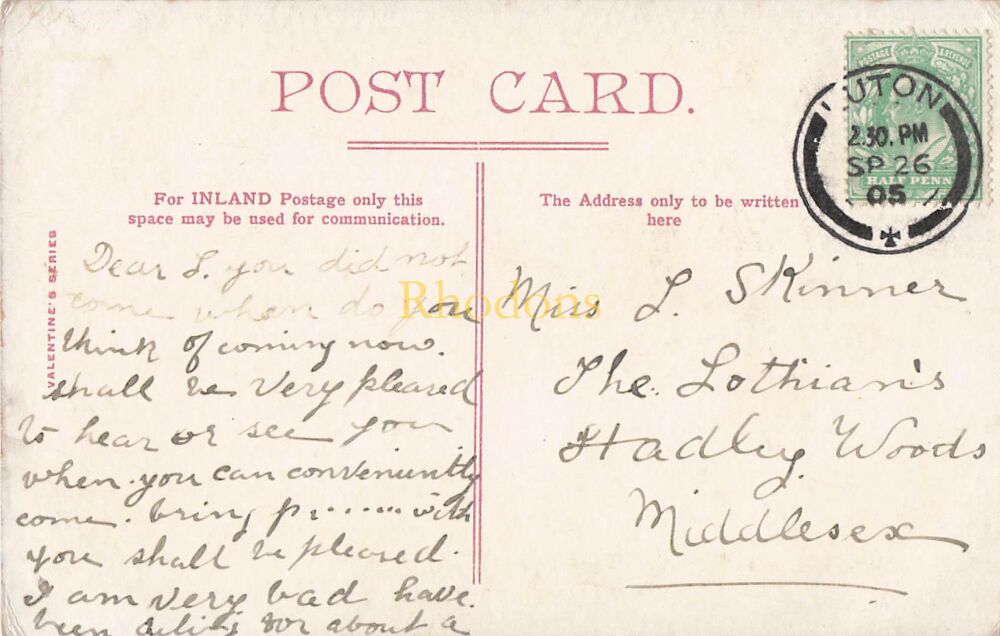 POST CARD.
For INLAND Postage only this
space may be used for communication.
The Address only to be written
here
VALENTINE'S SERIES
POSTAGE & REVENUE
HALF PENN
LUTON
2.30. PM
SP 26
05
Dear L. you did not
come when do you
think of coming now.
shall be very pleased
to hear or see you
when you can conveniently
come. bring p....... with
you shall be pleased.
I am very bad have
been for about a
Miss L. Skinner
The Lothian's
Hadley Woods
Middlesex
Rhodons